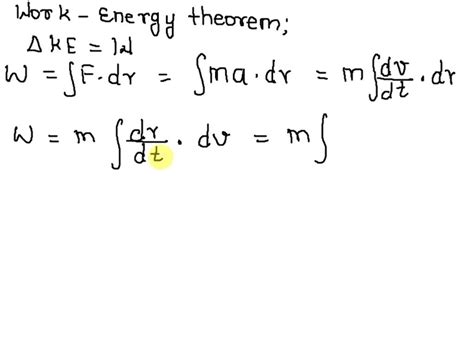 Work - Energy theorem;
Δ KE = W
W = ∫F. dr = ∫ma . dr = m∫dv/dt . dr
W = m ∫dr/dt . dv = m∫